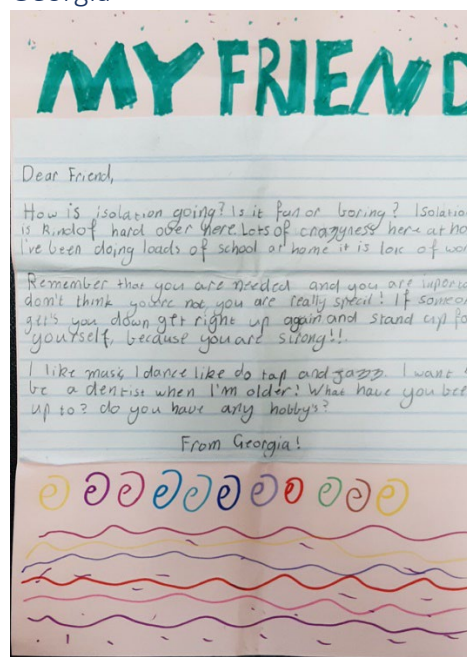 Georgia
MY FRIEND
Dear Friend,
How is isolation going? Is it fun or boring? Isolatio
is kindof hard over here. Lots of crazyness here at ho
I've been doing loads of school at home it is lots of wor
Remember that you are needed and you are inporta
don't think you're not you are really speciol! If someo
get's you down get right up again and stand up fo
yourself, because you are strong!!
I like music, I dance like do tap and jazz. I want t
be a dentist when I'm older! What have you bee
up to? do you have any hobby's?
From Georgia!